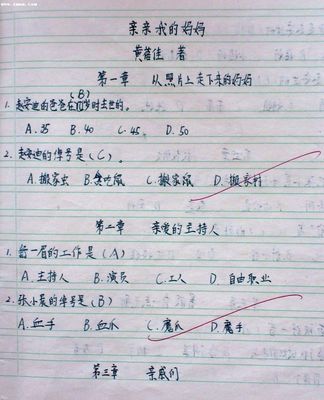 亲亲我的妈妈
黄蓓佳:著
第一章 从照片上走下来的妈妈
1.赵安迪的爸爸在(B)岁时去世的。
A.35 B.40 C.45 D.50
2.赵安迪的伟号是(C)。
A.搬家虫 B.贪吃鼠 C.搬家鼠 D.搬家
第二章 亲爱的主持人
1.舒一眉的工作是(A)
A.主持人 B.演员 C.工人 D.自由职业
2.张小晨的伟号是(B)
A.血手 B.血爪 C.魔爪 D.魔手
第三章 亲戚们